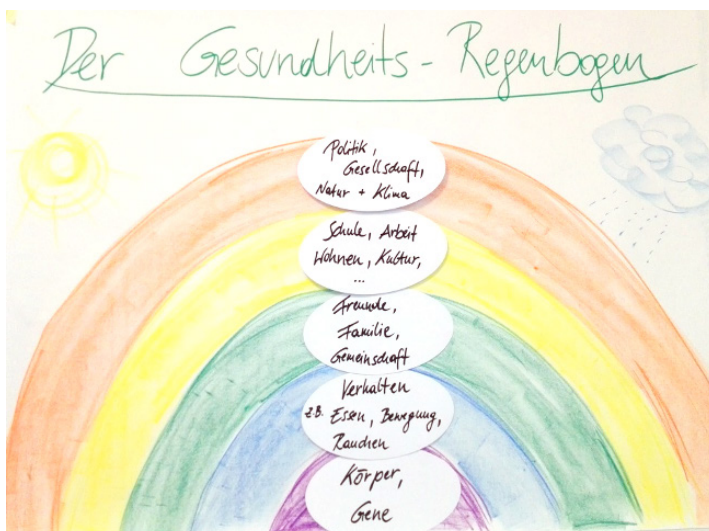 Der Gesundheits-Regenbogen
Politik,
Gesellschaft,
Natur + Klima
Schule, Arbeit
Wohnen, Kultur,
...
Freunde,
Familie,
Gemeinschaft
Verhalten
z.B. Essen, Bewegung,
Rauchen
Körper,
Gene